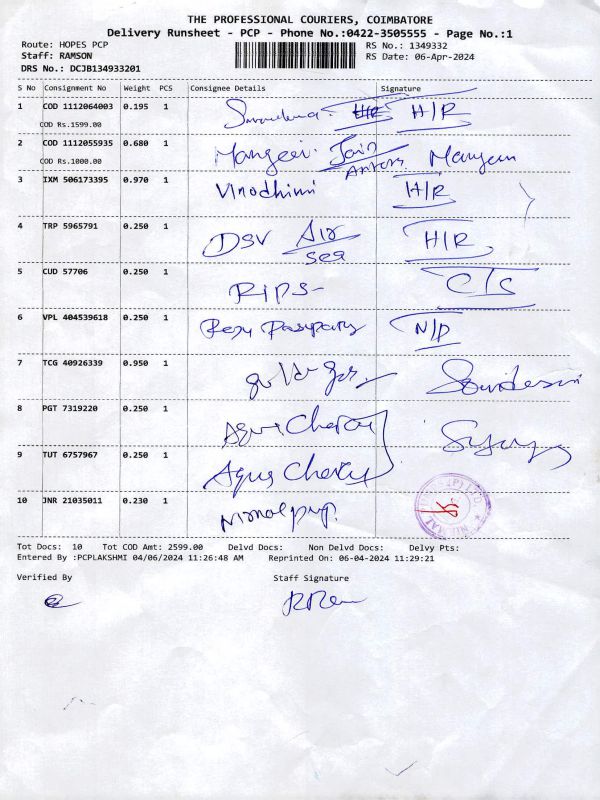 THE PROFESSIONAL COURIERS, COIMBATORE
Delivery Runsheet - PCP - Phone No.:0422-3505555 - Page No.:1
Route: HOPES PCP RS No.: 1349332
Staff: RAMSON RS Date: 06-Apr-2024
DRS No.: DCJB134933201
S No Consignment No Weight PCS Consignee Details Signature
1 COD 1112064003 0.195 1 H/R H/R
COD Rs.1599.00
2 COD 1112055935 0.680 1 Jain
COD Rs.1000.00
3 IXM 506173395 0.970 1 Vinodhini H/R
4 TRP 5965791 0.250 1 DSV Air H/R
Sea
5 CUD 57706 0.250 1 RIPS- C/S
6 VPL 404539618 0.250 1 N/D
7 TCG 40926339 0.950 1
8 PGT 7319220 0.250 1
9 TUT 6757967 0.250 1
10 JNR 21035011 0.230 1
Tot Docs: 10 Tot COD Amt: 2599.00 Delvd Docs: Non Delvd Docs: Delvy Pts:
Entered By :PCPLAKSHMI 04/06/2024 11:26:48 AM Reprinted On: 06-04-2024 11:29:21
Verified By Staff Signature